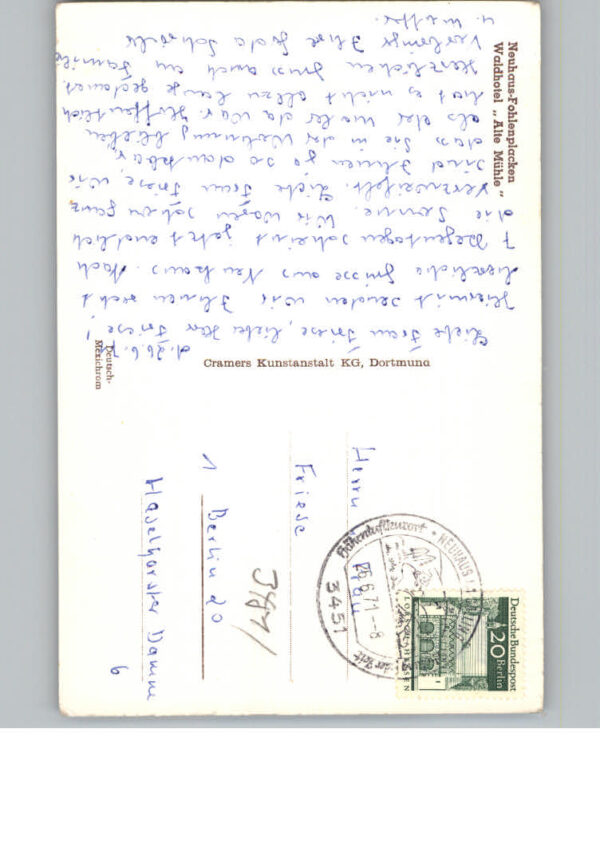 Neuhaus-Fohlenplacken
Waldhotel „Alte Mühle"
d. 26.6.71
Liebe Frau Friese, lieber Herr Friese!
Hiermit senden wir Ihnen recht
herzliche Grüsse aus Neuhaus. Nach
7 Regentagen scheint jetzt endlich
die Sonne. Wir waren schon ganz
verzweifelt. Liebe Frau Friese, wir
sind Ihnen ja so dankbar,
dass Sie in der Wohnung blieben
als der Maler da war. Hoffentlich
hat es nicht allzu lange gedauert.
Herzlichen Gruss auch an Familie
Ihre Gerda
u.
Cramers Kunstanstalt KG, Dortmund
Deutsch-
Mexichrom
Herrn
Frau
Friese
1 Berlin 20
Haselhorster Damm
6
3451
26.6.71-8
Höhenluftkurort
NEUHAUS
Deutsche Bundespost
20 Berlin
LORSCH/HESSEN